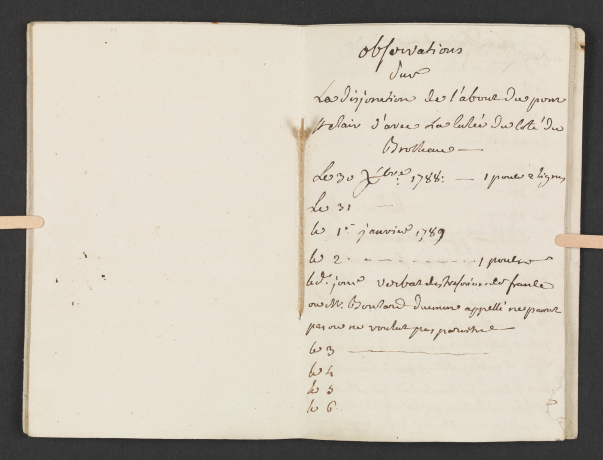 observations
Sur
La disjonction de l'about du pont
St clair d'avec La culée du coté du
Brotteau
Le 30 Xbre. 1788. — 1 pouce 2 lignes
Le 31 —
le 1er janvier 1789
le 2 - - - - - - - - - - - 1 pouce
led. jour verbal de
ou Mr. appellé ne parut
pas ou ne voulut pas paroitre
le 3
le 4
le 5
le 6